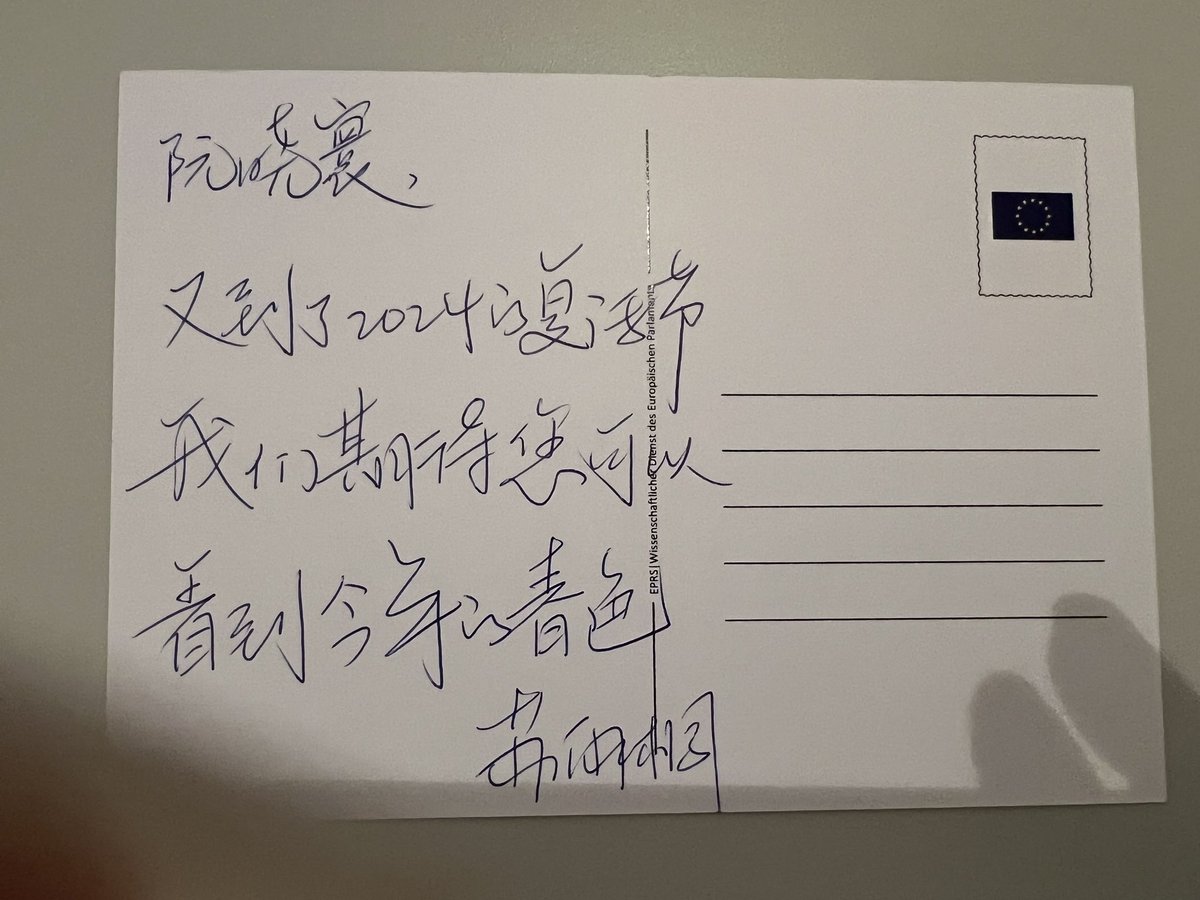 阮晓寰,
又到了2024的复活节
我们期待您可以
看到今年的春色
苏
EPRS | Wissenschaftlicher Dienst des Europäischen Parlaments